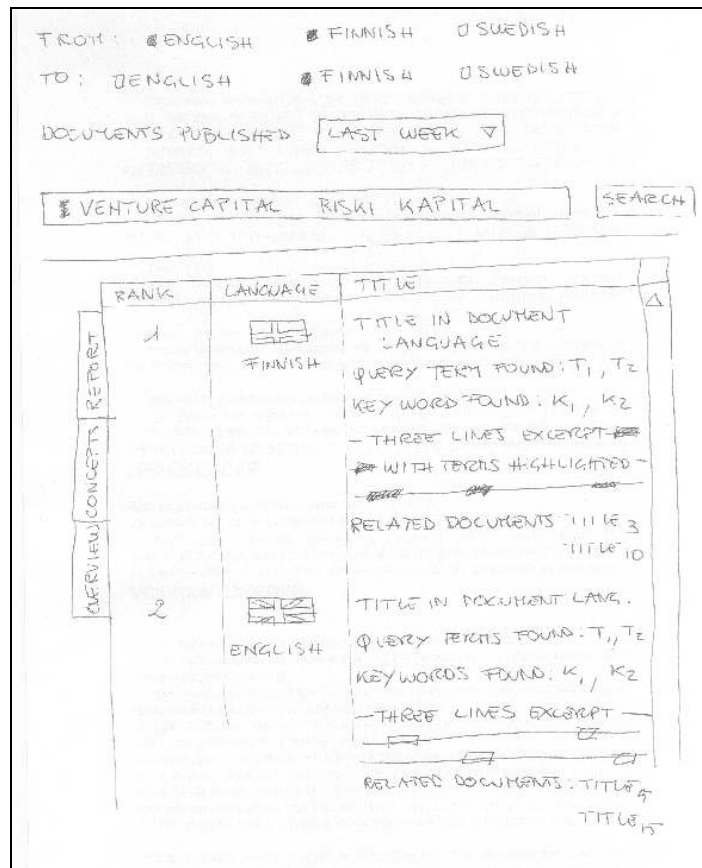 FROM: ENGLISH FINNISH SWEDISH
TO: ENGLISH FINNISH SWEDISH
DOCUMENTS PUBLISHED LAST WEEK
VENTURE CAPITAL RISKI KAPITAL SEARCH
RANK LANGUAGE TITLE
REPORT
CONCEPTS
OVERVIEW
1 FINNISH TITLE IN DOCUMENT
LANGUAGE
QUERY TERM FOUND: T1, T2
KEY WORD FOUND: K1, K2
- THREE LINES EXCERPT -
WITH TERMS HIGHLIGHTED -
RELATED DOCUMENTS TITLE 3
TITLE 10
2 ENGLISH TITLE IN DOCUMENT LANG.
QUERY TERMS FOUND: T1, T2
KEYWORDS FOUND: K1, K2
- THREE LINES EXCERPT -
RELATED DOCUMENTS: TITLE
TITLE 15